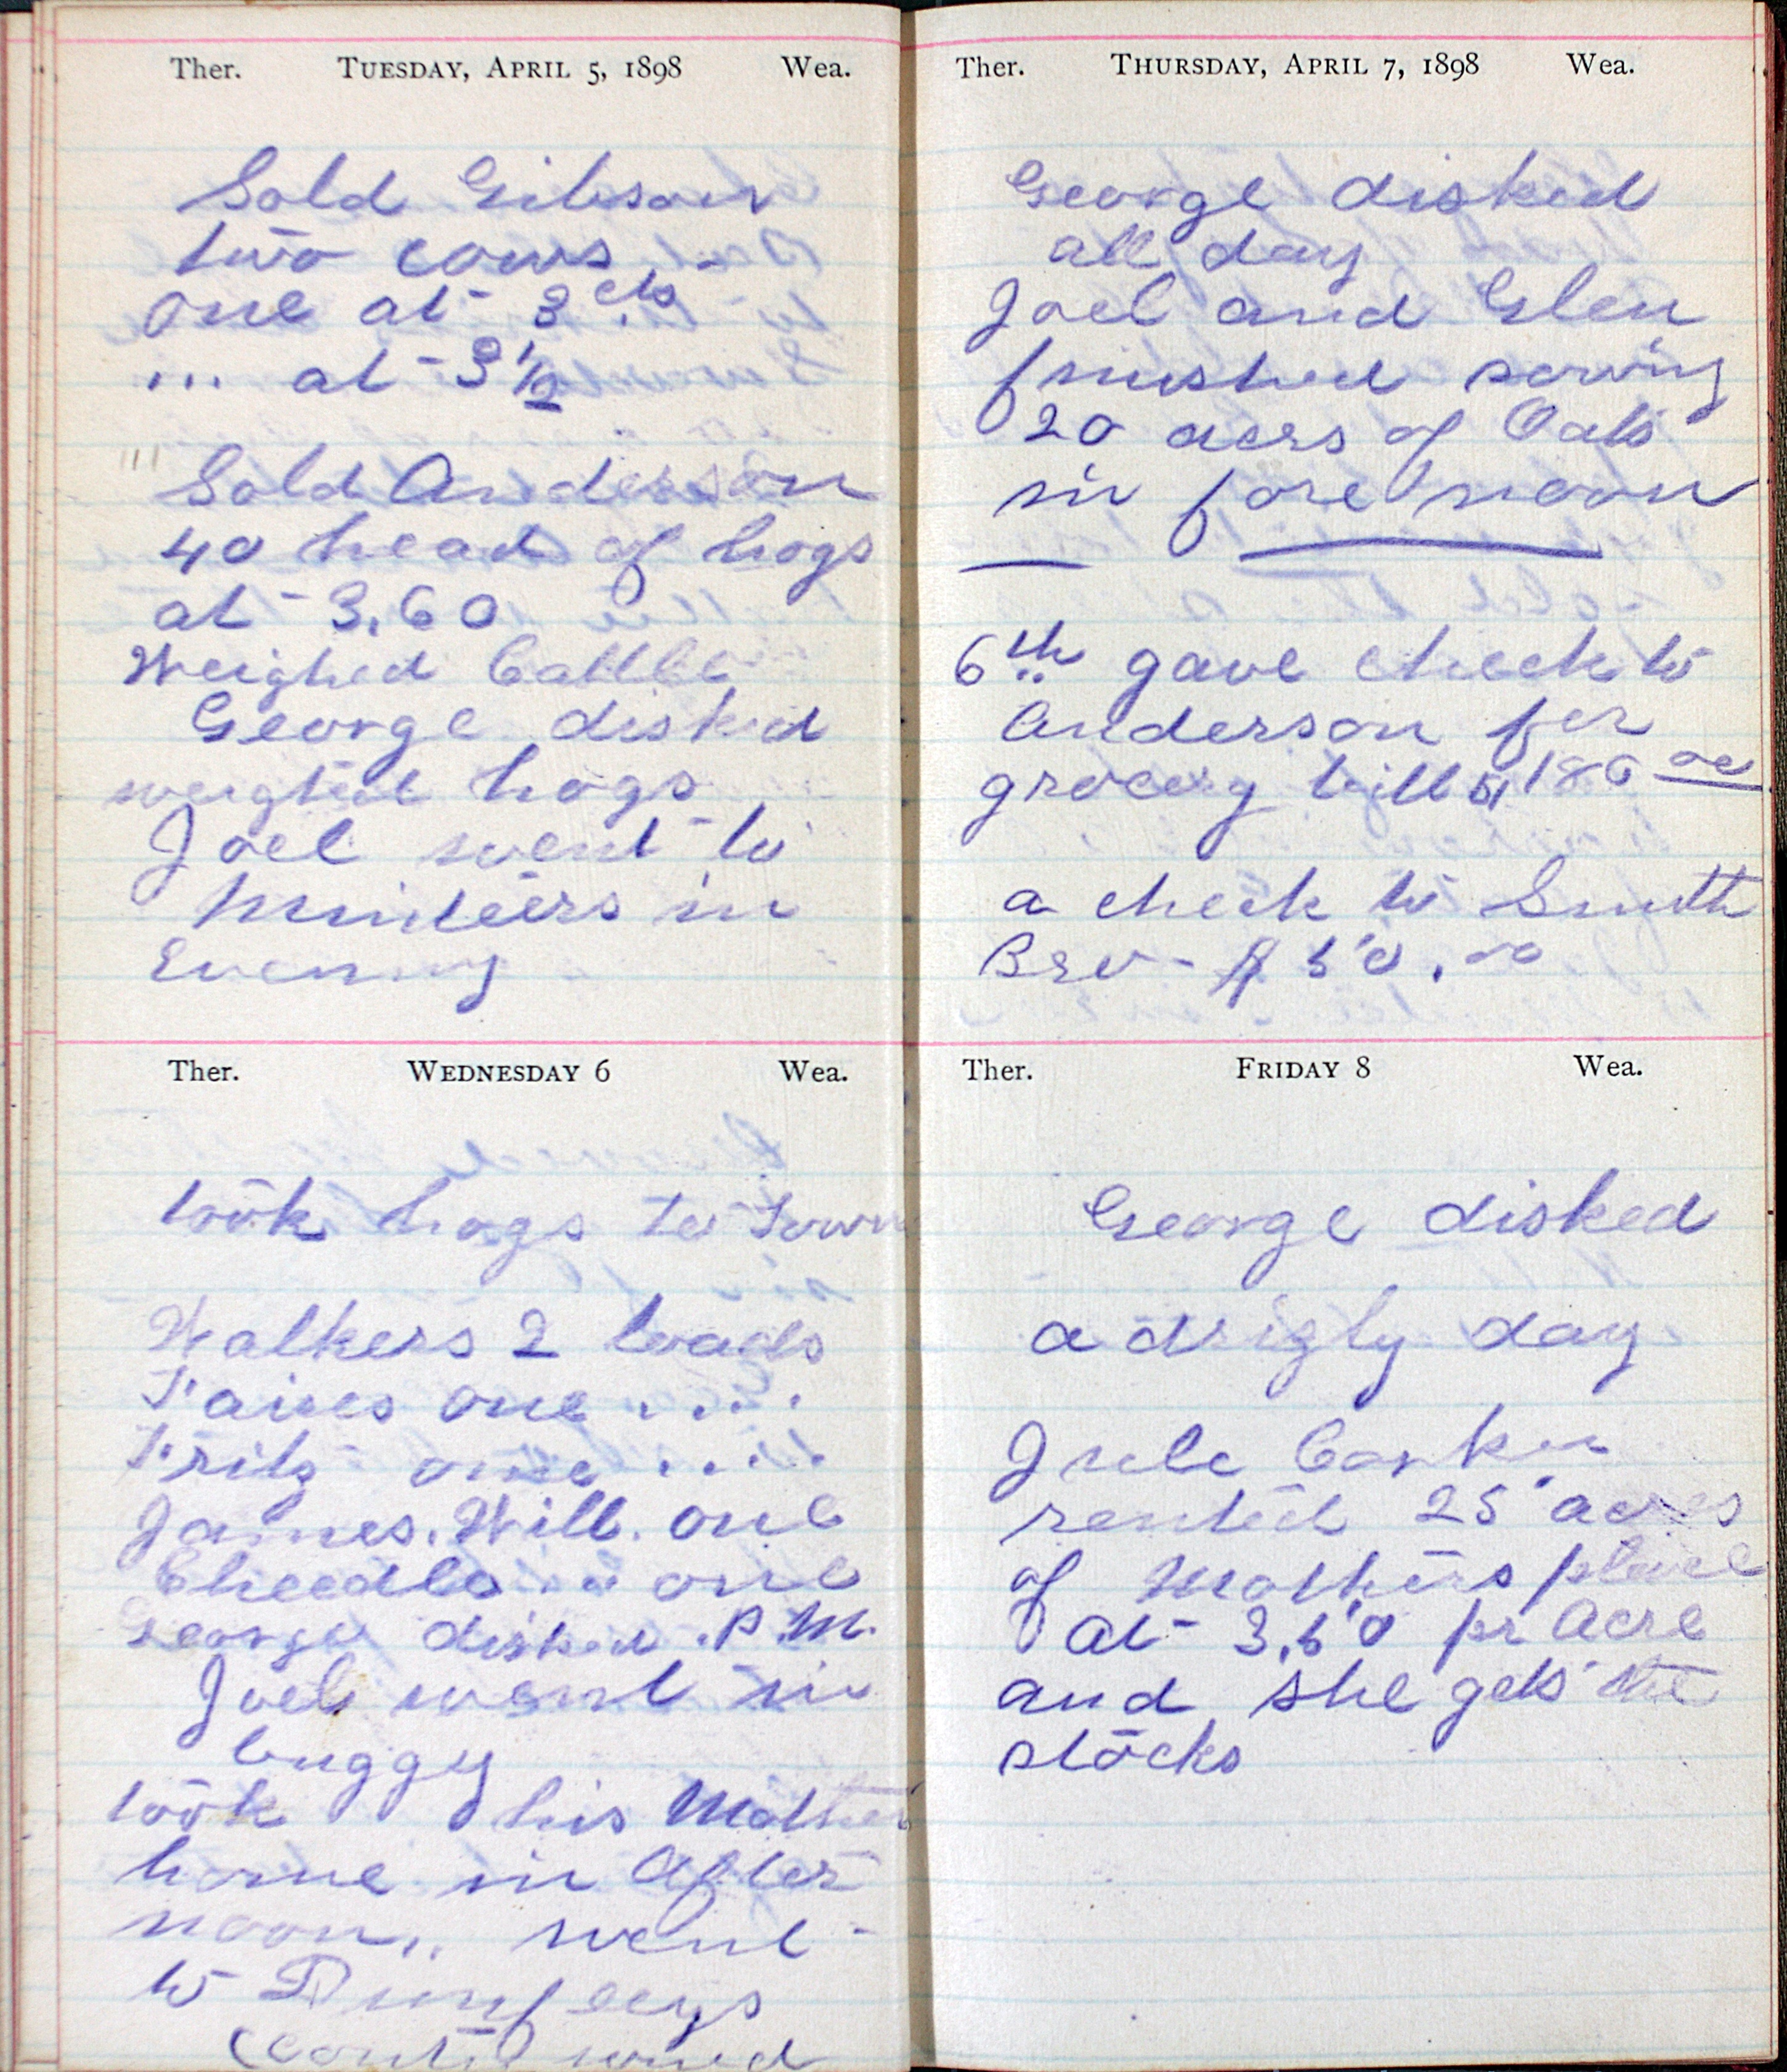 Ther. TUESDAY, APRIL 5, 1898 Wea.
Sold Gibson
two cows
one at 3 cts
... at 3 1/2
Sold Anderson
40 head of hogs
at 3.60
Weighed Cattle
George disked
weighed hogs
Joel went to
Minteers in
Evening
Ther. WEDNESDAY 6 Wea.
took hogs to Town
Walkers 2 loads
one ....
Fritz one ....
James. Will. one
Cheedle .. one
George disked .P.M.
Joel went in
buggy
took his Mother
home in After
noon.. went
to
(Continued
Ther. THURSDAY, APRIL 7, 1898 Wea.
George disked
all day
Joel and Glen
finished sowing
20 acrs of Oats
in fore noon
6th gave check to
Anderson for
grocery bill
a check to Smith
Bro - $ 50.00
Ther. FRIDAY 8 Wea.
George disked
a drigly day
Jule
rented 25 acres
of Mothers place
at 3.50 pr acre
and she gets the
stocks